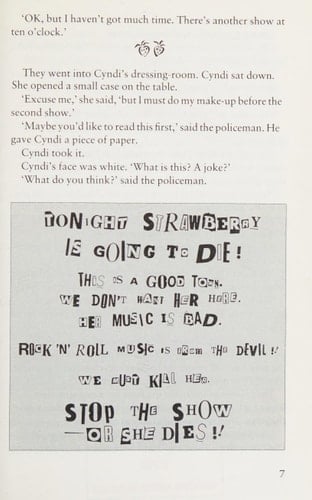 ‘OK, but I haven’t got much time. There’s another show at
ten o’clock.’
They went into Cyndi’s dressing-room. Cyndi sat down.
She opened a small case on the table.
‘Excuse me,’ she said, ‘but I must do my make-up before the
second show.’
‘Maybe you’d like to read this first,’ said the policeman. He
gave Cyndi a piece of paper.
Cyndi took it.
Cyndi’s face was white. ‘What is this? A joke?’
‘What do you think?’ said the policeman.
TONIGHT STRAWBERRY
IS GOING TO DIE!
THIS IS A GOOD TOWN.
WE DON'T WANT HER HERE.
HER MUSIC IS BAD.
ROCK 'N' ROLL MUSIC IS FROM THE DEVIL!!
WE MUST KILL HER.
STOP THE SHOW
—OR SHE DIES!!
7